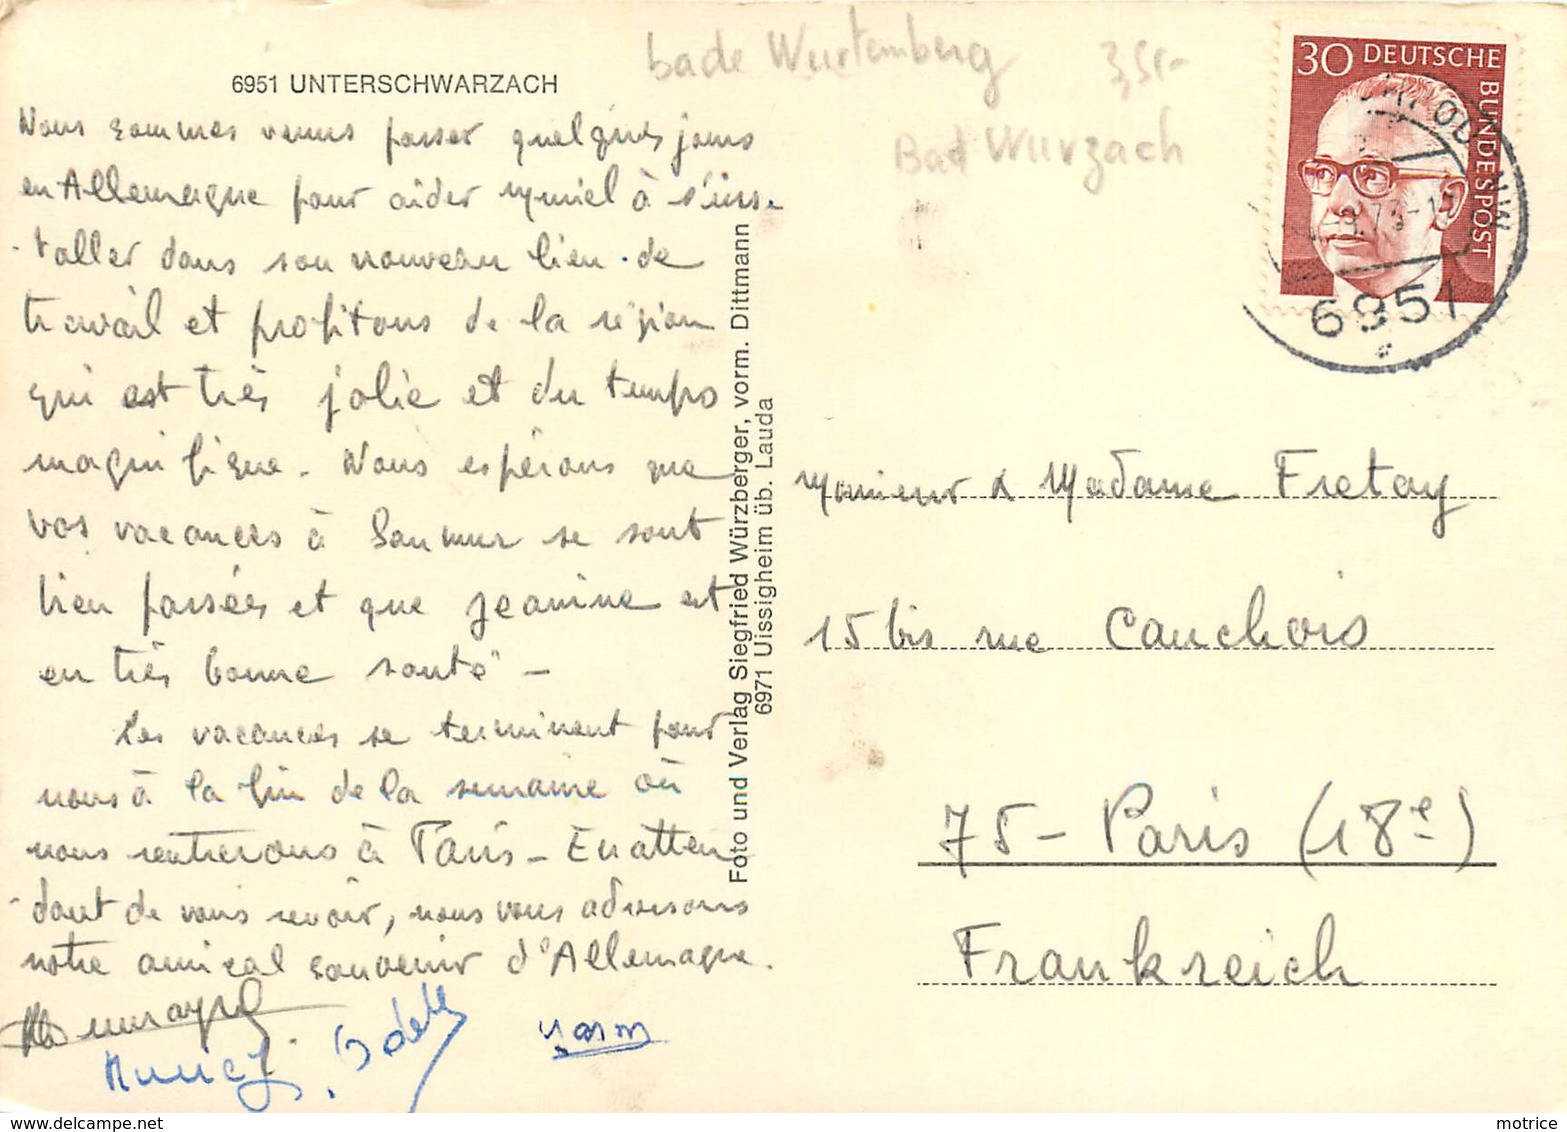 bade Wurtemberg
Bad Wurzach
30 DEUTSCHE
BUNDESPOST
6951
6951 UNTERSCHWARZACH
Nous sommes venus passer quelques jours
en Allemagne pour aider Muriel à s'ins-
-taller dans son nouveau lieu de
travail et profitons de la région
qui est très jolie et du temps
magnifique. Nous espérons que
vos vacances à Saumur se sont
bien passées et que Jeanine est
en très bonne santé -
Les vacances se terminent pour
nous à la fin de la semaine où
nous rentrerons à Paris - En atten
-dant de vous revoir, nous vous adressons
notre amical souvenir d'Allemagne.
Muriel. Odette
Foto und Verlag Siegfried Würzberger, vorm. Dittmann
6971 Uissigheim üb. Lauda
Monsieur & Madame Fretay
15 bis rue Cauchois
75 - Paris (18e)
Frankreich
delcampe.net
motrice